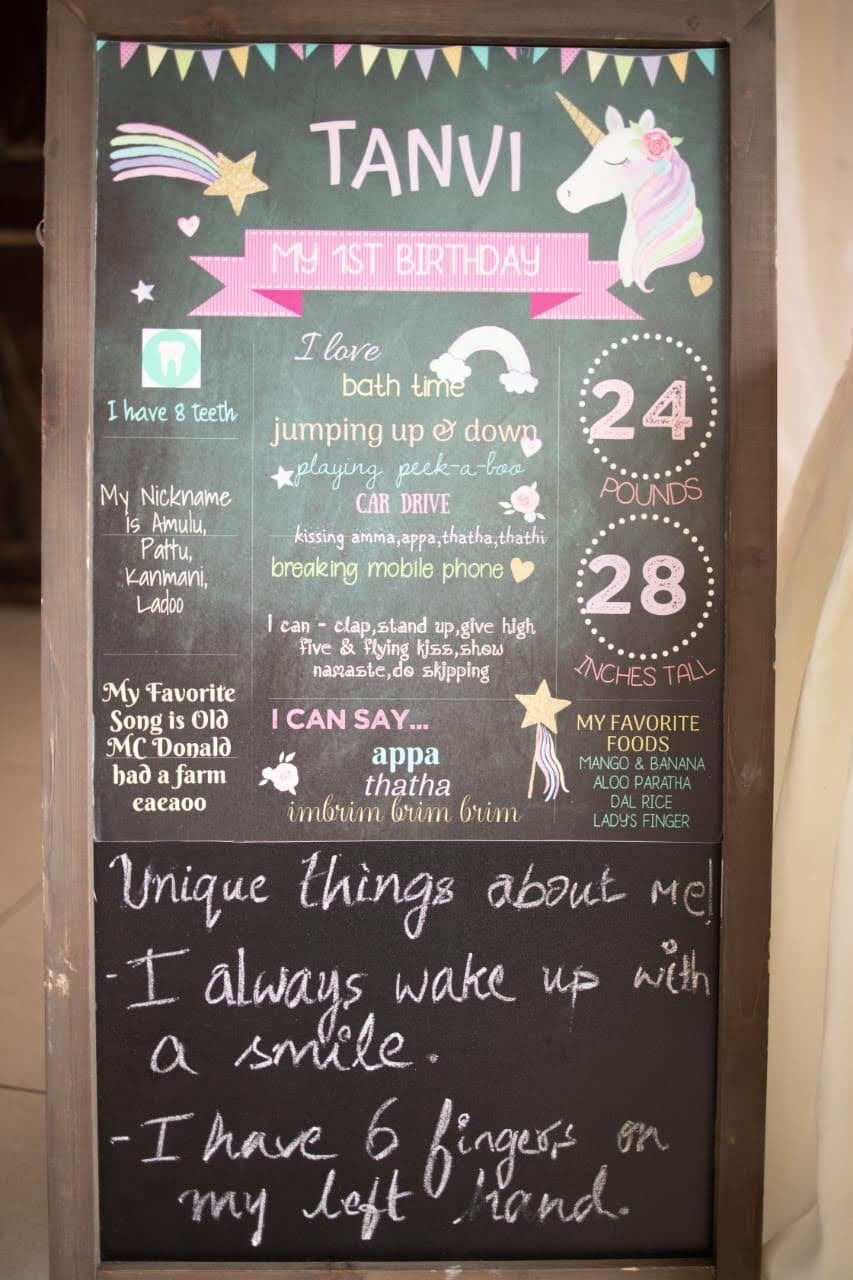 TANVI
MY 1ST BIRTHDAY
I have 8 teeth
My Nickname
is Amulu,
Pattu,
Kanmani,
Ladoo
My Favorite
Song is Old
MC Donald
had a farm
eaeaoo
I love
bath time
jumping up & down
playing peek-a-boo
CAR DRIVE
kissing amma,appa,thatha,thathi
breaking mobile phone
I can - clap,stand up,give high
five & flying kiss,show
namaste,do skipping
I CAN SAY...
appa
thatha
imbrim brim brim
24
POUNDS
28
INCHES TALL
MY FAVORITE
FOODS
MANGO & BANANA
ALOO PARATHA
DAL RICE
LADY'S FINGER
Unique things about me!
- I always wake up with
a smile.
- I have 6 fingers on
my left hand.